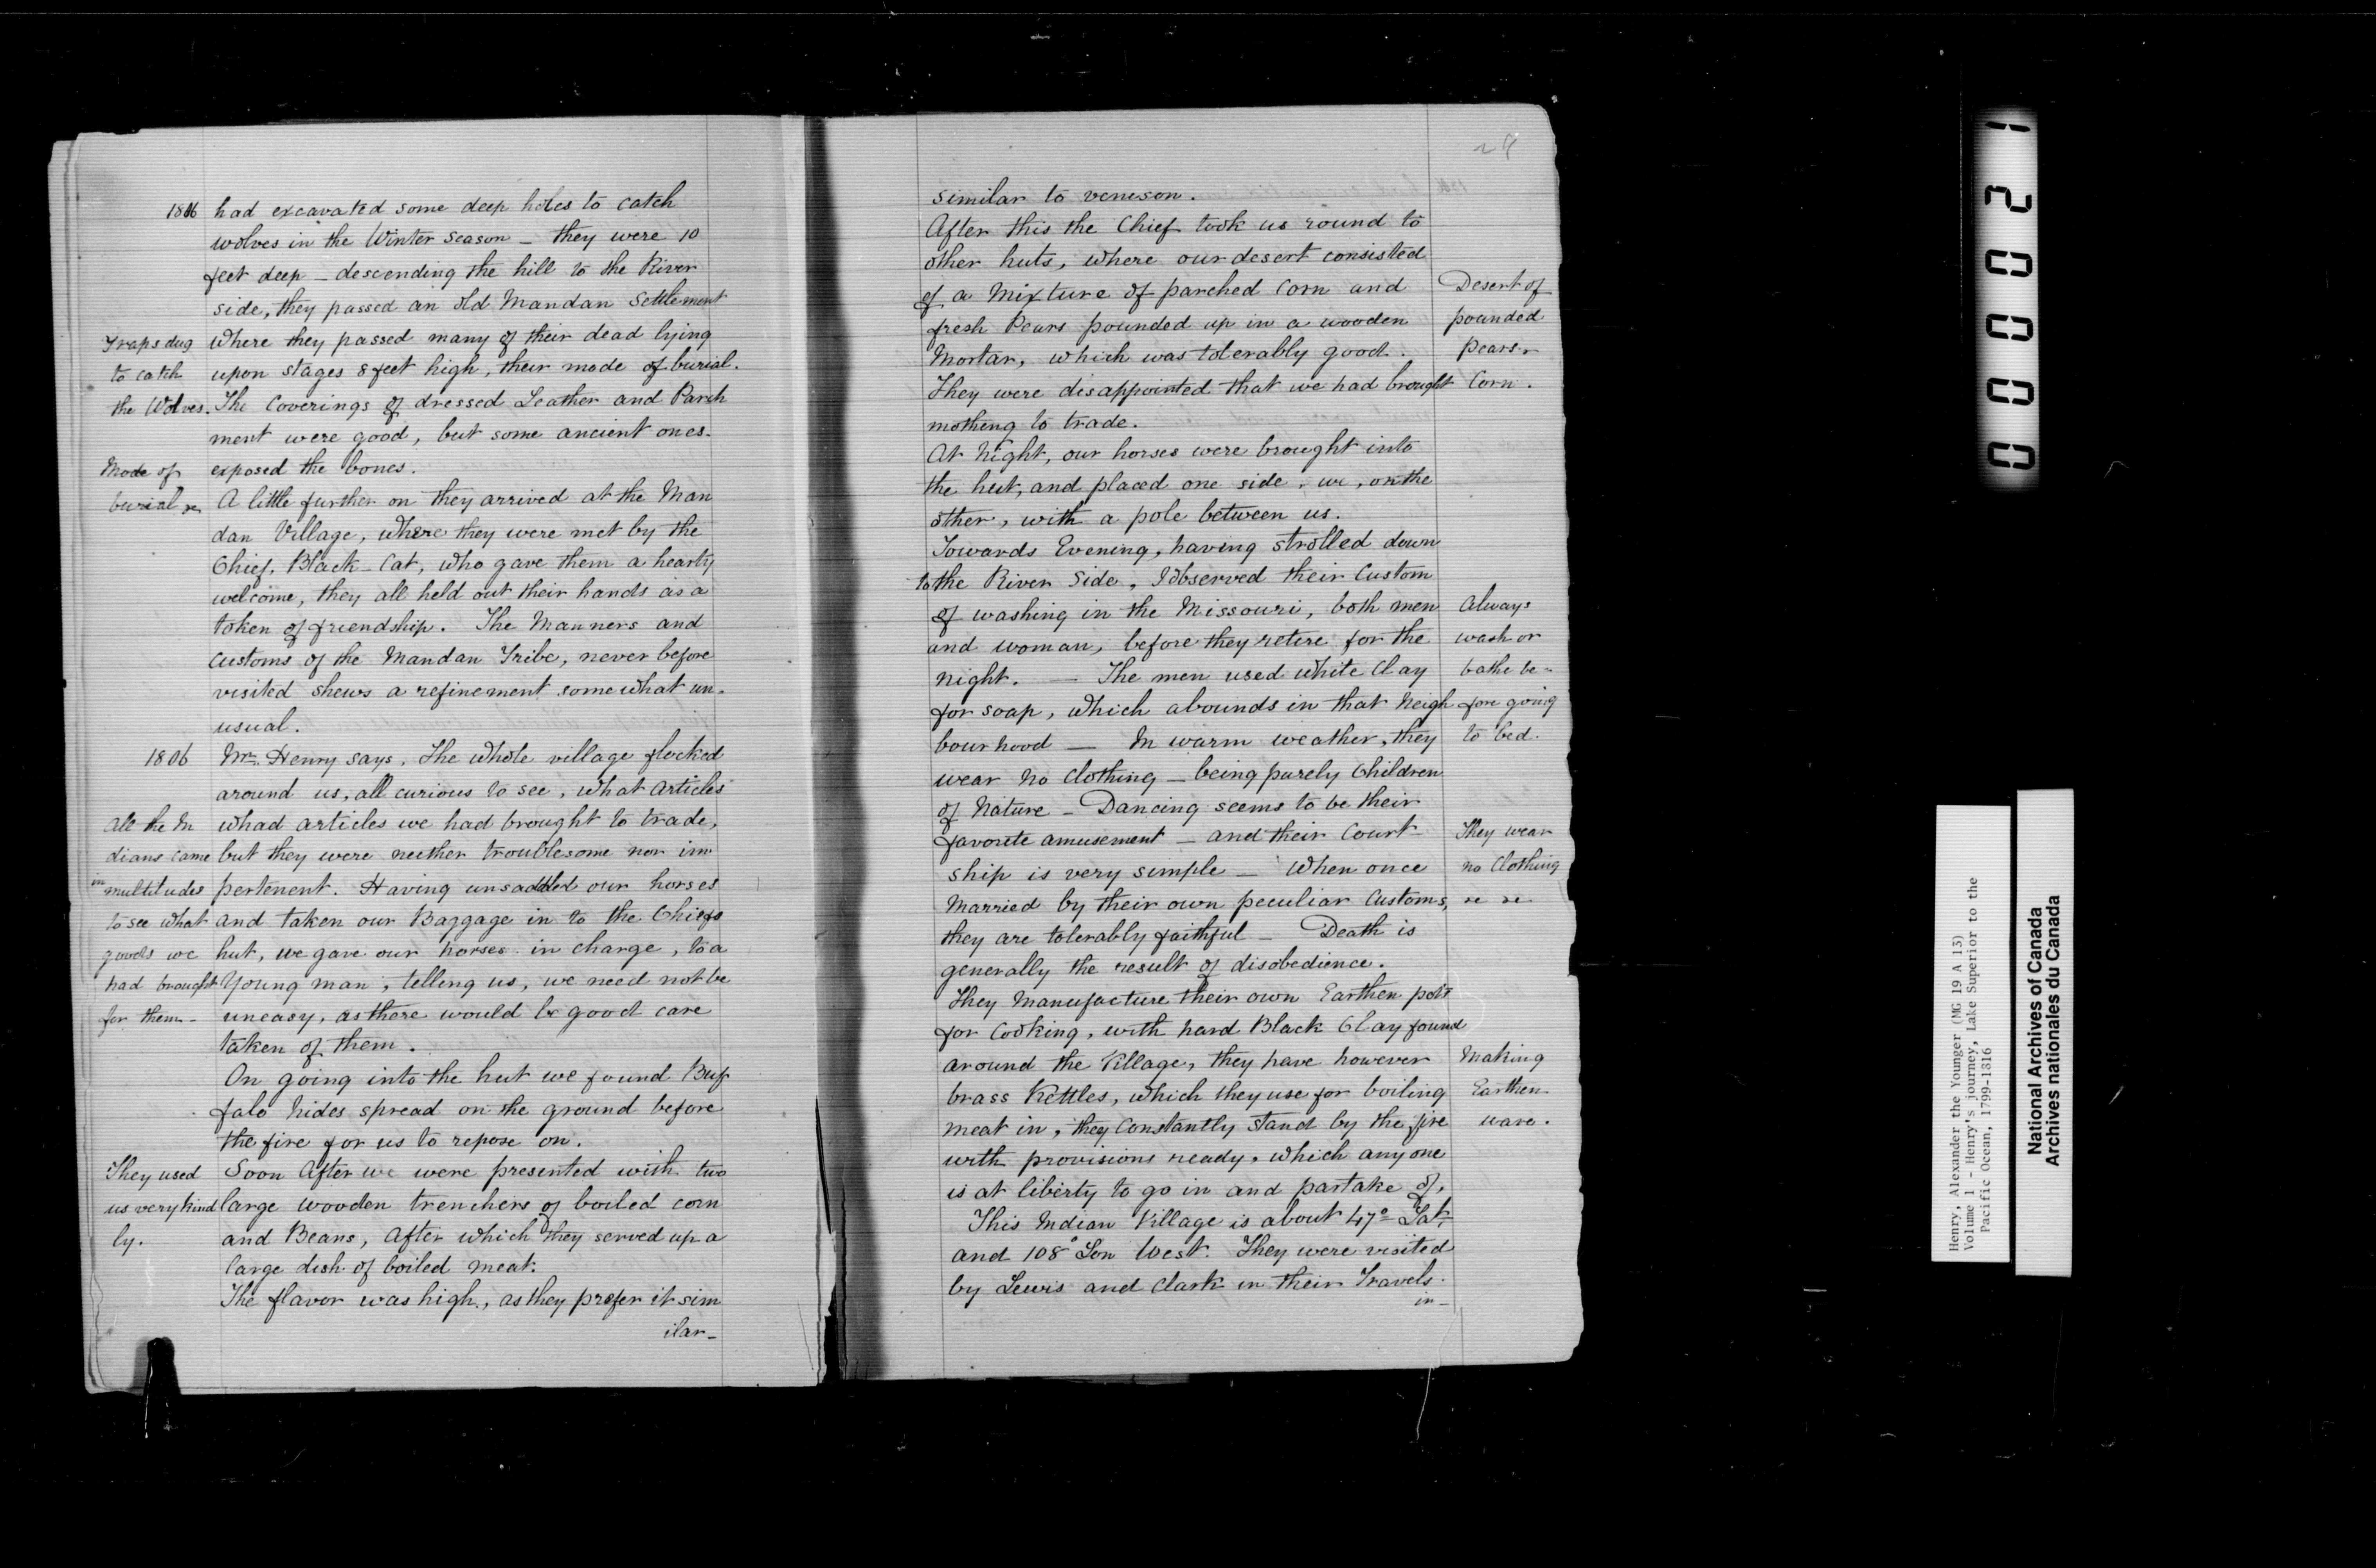 1806 had excavated some deep holes to catch
wolves in the Winter season - they were 10
feet deep - descending the hill to the River
side, they passed an old Mandan Settlement
Traps dug where they passed many of their dead lying
to catch upon stages 8 feet high, their mode of burial.
the Wolves. The Coverings of dressed Leather and Parch
ment were good, but some ancient ones.
Mode of exposed the bones.
burial &c A little further on they arrived at the Man
dan Village, where they were met by the
Chief. Black-Cat, who gave them a hearty
welcome, they all held out their hands as a
token of friendship. The Manners and
Customs of the Mandan Tribe, never before
visited shews a refinement somewhat un-
usual.
1806 Mr. Henry says, The whole village flocked
around us, all curious to see, what articles
All the In whad articles we had brought to trade,
dians came but they were neither troublesome nor im
in multitudes pertenent. Having unsaddled our horses
to see what and taken our Baggage in to the Chiefs
goods we hut, we gave our horses in charge, to a
had brought Young man, telling us, we need not be
for them - uneasy, as there would be good care
taken of them.
On going into the hut we found Buf
falo hides spread on the ground before
the fire for us to repose on.
They used Soon After we were presented with two
us very kind large wooden trenchers of boiled corn
ly. and Beans, After which they served up a
large dish of boiled meat.
The flavor was high, as they prefer it sim
ilar-
similar to veneson.
After this the Chief took us round to
other huts, where our desert consisted
of a Mixture of parched Corn and Desert of
fresh Pears pounded up in a wooden pounded
Mortar, which was tolerably good. pears &
They were disappointed that we had brought Corn.
nothing to trade.
At Night, our horses were brought into
the hut, and placed one side, we, on the
other, with a pole between us.
Towards Evening, having strolled down
to the River Side, I observed their Custom
of washing in the Missouri, both men Always
and woman, before they retire for the wash or
night. - The men used white Clay bathe be-
for soap, which abounds in that Neigh fore going
bourhood - In warm weather, they to bed.
wear no Clothing - being purely Children
of Nature - Dancing seems to be their
favorite amusement - and their Court- They wear
ship is very simple - When once no Clothing
Married by their own peculiar Customs, &c &c
they are tolerably faithful - Death is
generally the result of disobedience.
They Manufacture their own Earthen pots
for Cooking, with hard Black Clay found
around the Village, they have however Making
brass Kettles, which they use for boiling Earthen
meat in, they Constantly stand by the fire ware.
with provisions ready, which any one
is at liberty to go in and partake of.
This Indian Village is about 47° Lat,
and 108° Lon West. They were visited
by Lewis and Clark in their Travels.
in-
000021
Henry, Alexander the Younger (MG 19 A 13)
Volume 1 - Henry's journey, Lake Superior to the
Pacific Ocean, 1799-1816
National Archives of Canada
Archives nationales du Canada